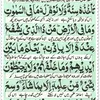 تَاْخُذُهٗ سِنَةٌ وَّلَا نَوْمٌ لَهٗ مَا فِی السَّمٰوٰتِ
وَمَا فِی الْاَرْضِ مَنْ ذَا الَّذِیْ یَشْفَعُ
عِنْدَهٗۤ اِلَّا بِاِذْنِهٖ یَعْلَمُ مَا بَیْنَ
اَیْدِیْهِمْ وَمَا خَلْفَهُمْ وَلَا یُحِیْطُوْنَ
بِشَیْءٍ مِّنْ عِلْمِهٖۤ اِلَّا بِمَا شَآءَ وَسِعَ